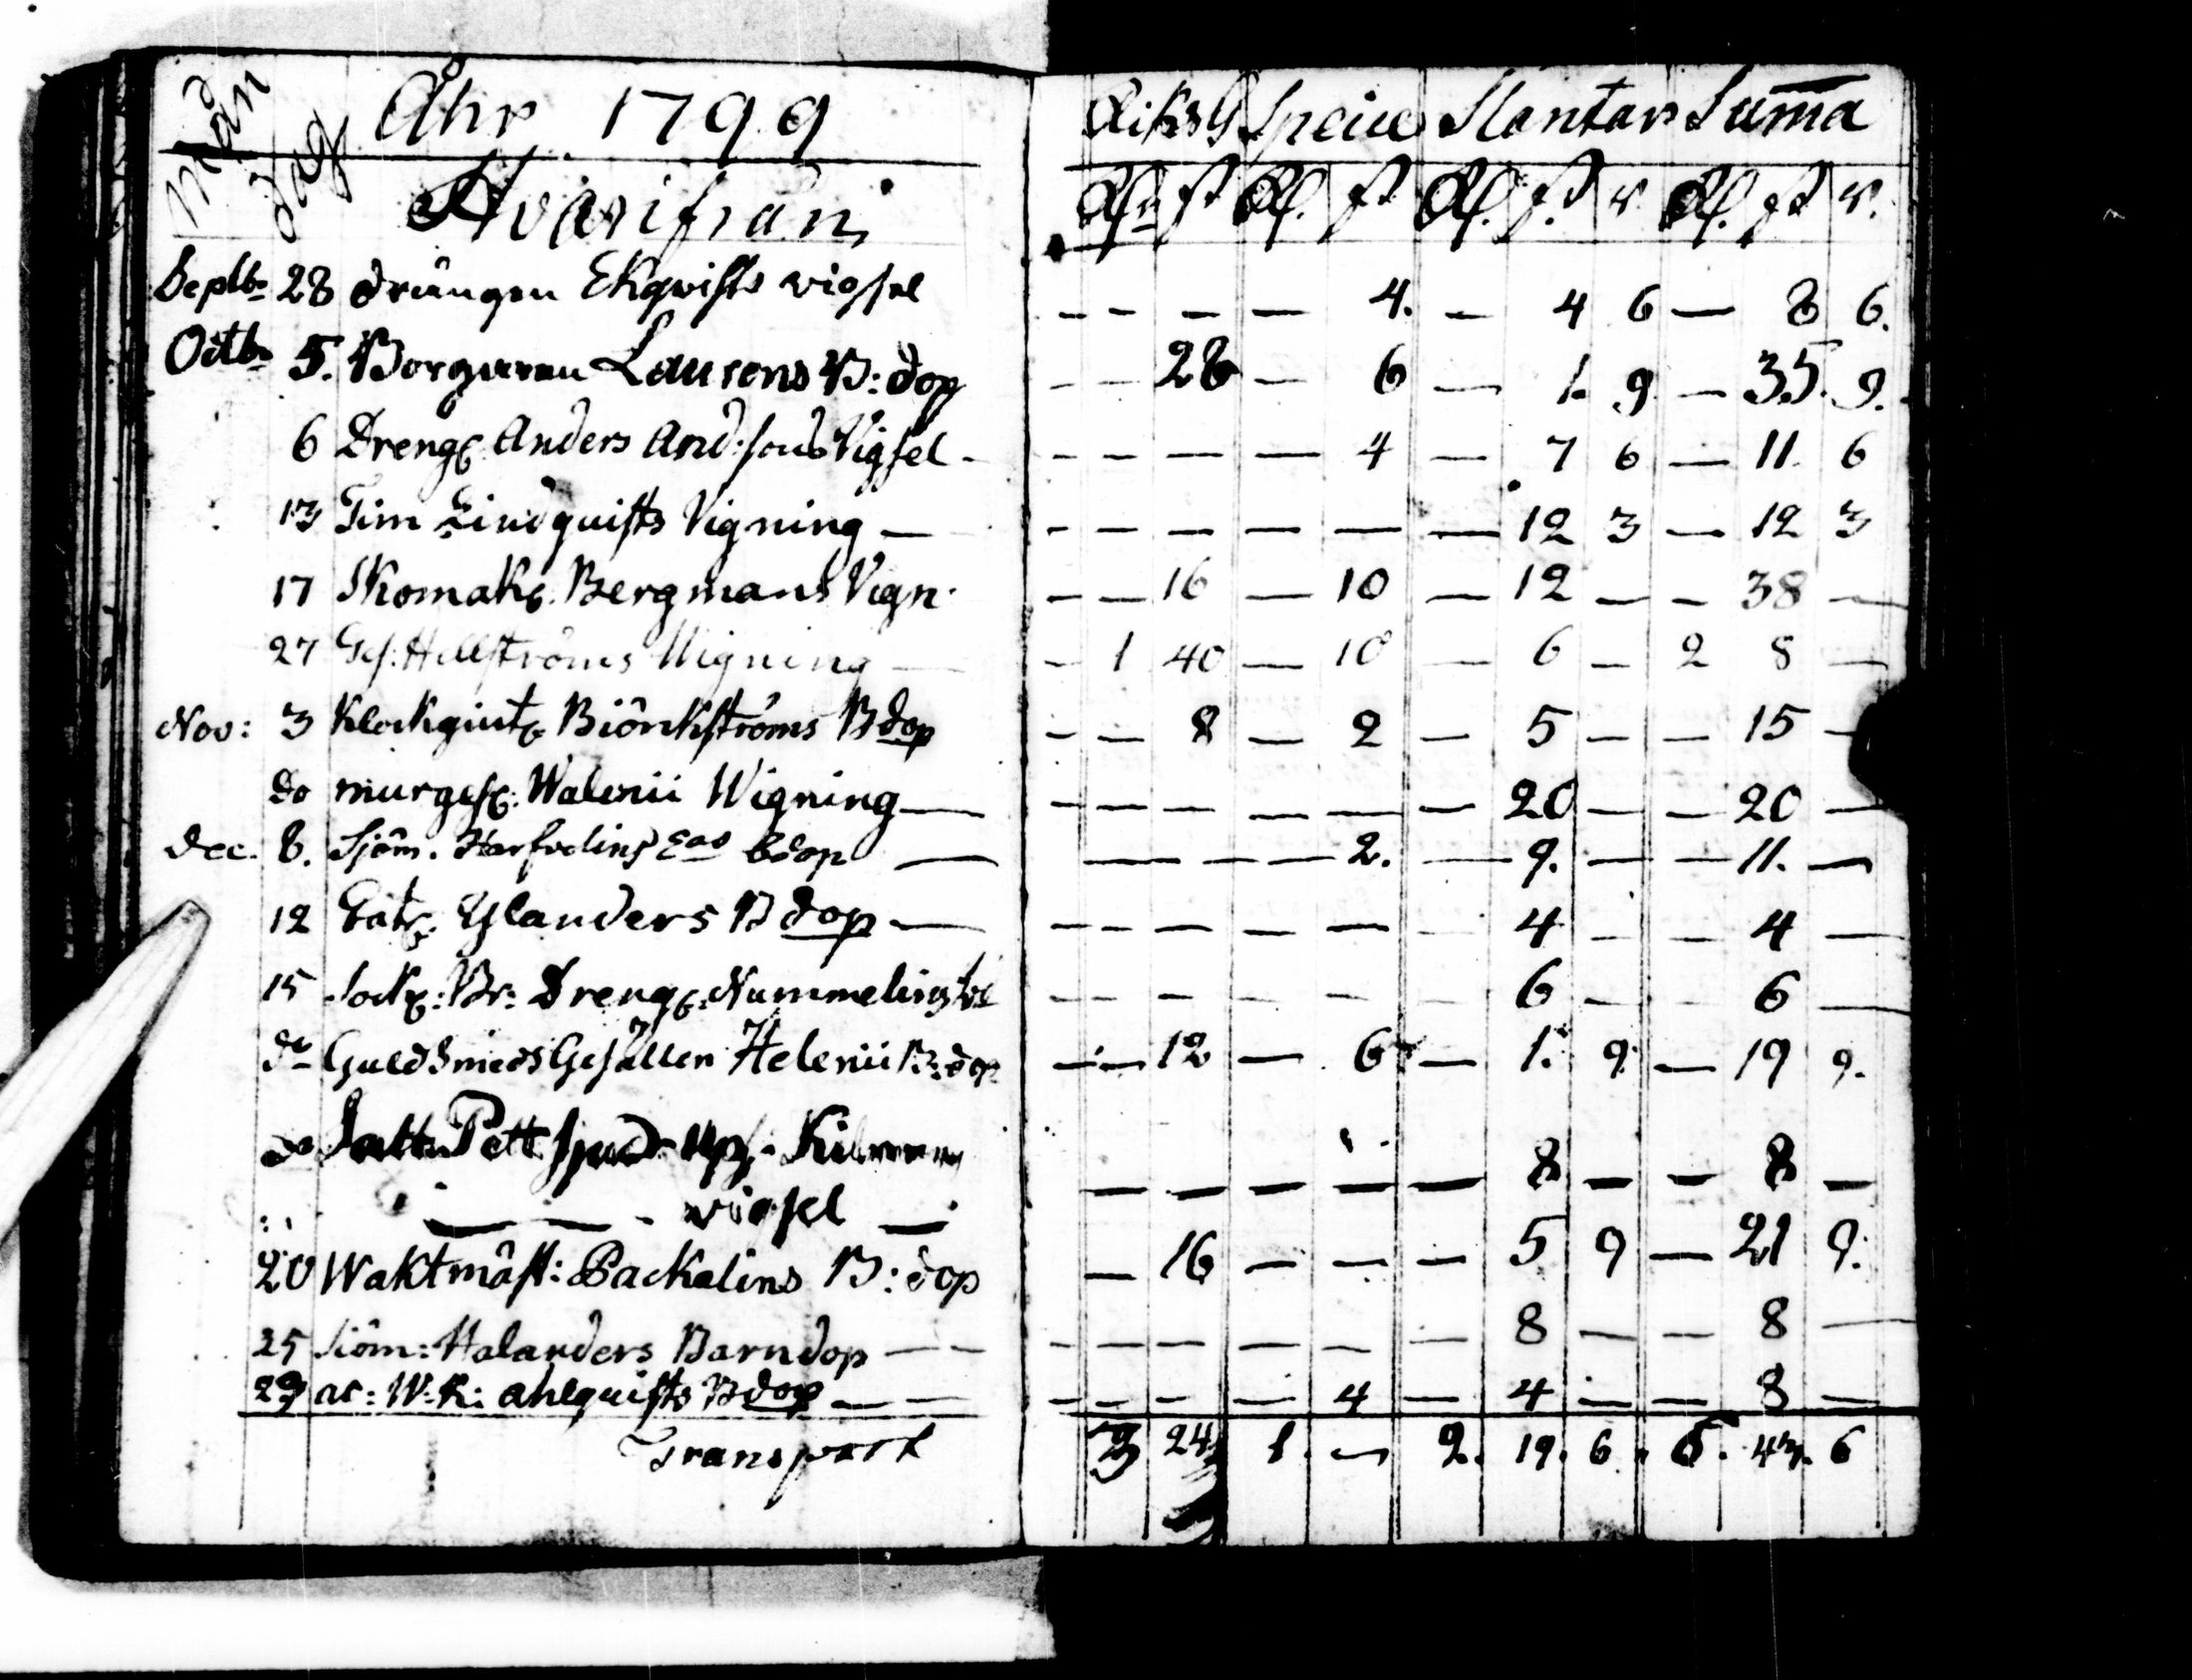 Månd Dag Åhr 1799 Riks G Speice Slantar Suma
Hvarifrån Rd ß Rd. ß Rd. ß r Rd. ß r.
Septb 28 drängen Ekqvists vigsel - - - — 4. — 4 6 — 8 6.
Octb 5. Borgaren Laurens B: dop - - 28 — 6 — 1. 9 — 35. 9.
6 Dreng Anders And:sons Vigsel - - - — — 4 — 7 6 — 11. 6
13 Tim Lindquists Vigning — - - - — — — 12 3 — 12 3
17 Skomak. Bergmans Vign. - — 16 — 10 — 12 — - 38 —
27 Ges: Hellströms Wigning — - 1 40 — 10 — 6 — 2 8 —
Nov: 3 Klockgiut Biörckströms B dop - — 8 — 2 — 5 - — 15 -
do murges: Walenii Wigning — - - - — — — 20 — — 20 —
Dec. 8. Sjöm. bdop — — — — 2. — 9. — — 11. —
12 Ylanders B dop — - - — — — - 4 - — 4 —
15 Br: Dreng: Nummelins - - - - - - 6 - - 6 —
do Guldsmeds Gesällen Helenii B: dop - — 12 — 6 — 1. 9 — 19 9.
do Pett — — — — — 8 — — 8 —
— — - vigsel —
20 Waktmäst: Packalins B: dop — 16 — — — 5 9 — 21 9.
25 Siöm: Halanders Barndop — - - - — — - — 8 — — 8 —
29 W: K: ahlquists B dop — — - - - — 4 — 4 — — 8 —
Transport 3 24 1. — 2. 19. 6. 6. 43. 6